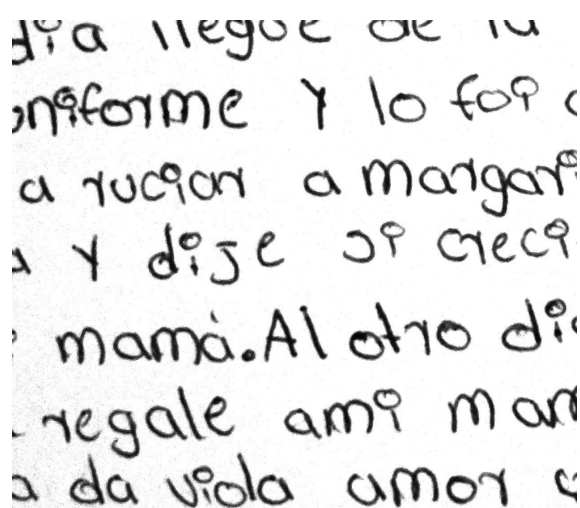 día llegue de la
oniforme y lo foi
a ruciar a margari
y dije si creci
mamá. Al otro dia
regale ami mam
da viola amor